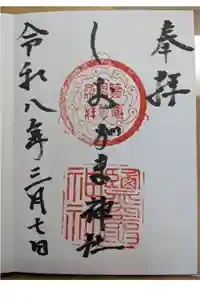 奉拝
しおがま神社
令和八年三月七日